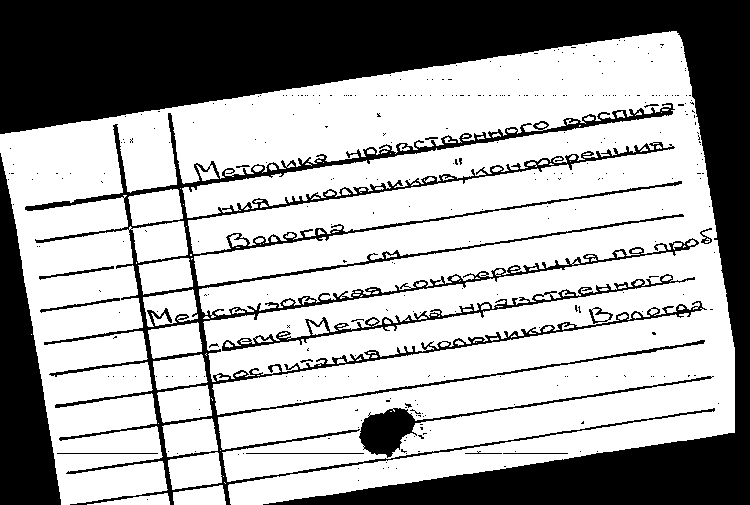 „Методика нравственного воспита-
ния школьников", конференция.
Вологда.
см.
Межвузовская конференция по проб-
леме „Методика нравственного
воспитания школьников" Вологда